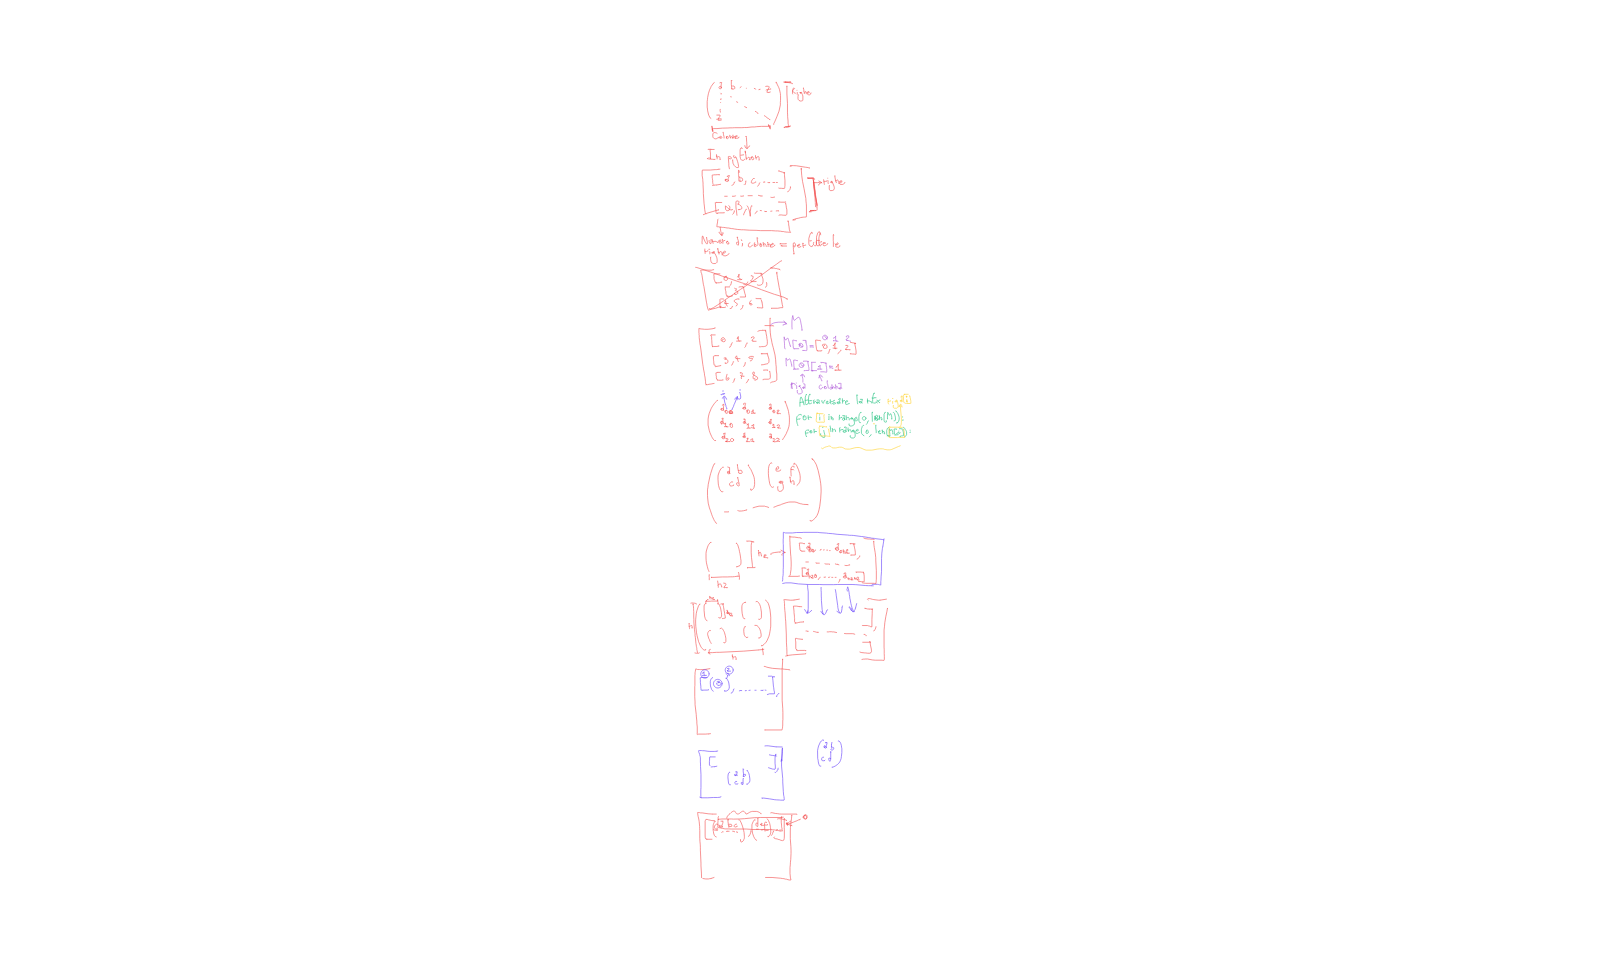 a b ..... z
Righe
z
Colonne
In python
[[a, b, c, .....],
→ righe
- - - - - -
[α, β, γ, .....]]
Numero di colonne = per tutte le
righe
[[0, 1, 2],
[3]
[4, 5, 6]]
→ M
[[0, 1, 2]
[3, 4, 5]
[6, 7, 8]]
0 1 2
M[0]=[0, 1, 2]
M[0][1]=1
riga colonna
i j
a00 a01 a02
a10 a11 a12
a20 a21 a22
Attraversare la mtx riga i
for i in range(0, len(M)):
for j in range(0, len(M[i])):
a b e f
c d g h
n2
n2
[[a00 .... a0n2],
- - - - - -
[an20, ...., an2n2]]
n
n
[[ ],
- - - - -
[ ]]
1 2
[[(0), ......],
a b
c d
[[ ],
a b
c d
[[(a b c), (d e f), ]
0